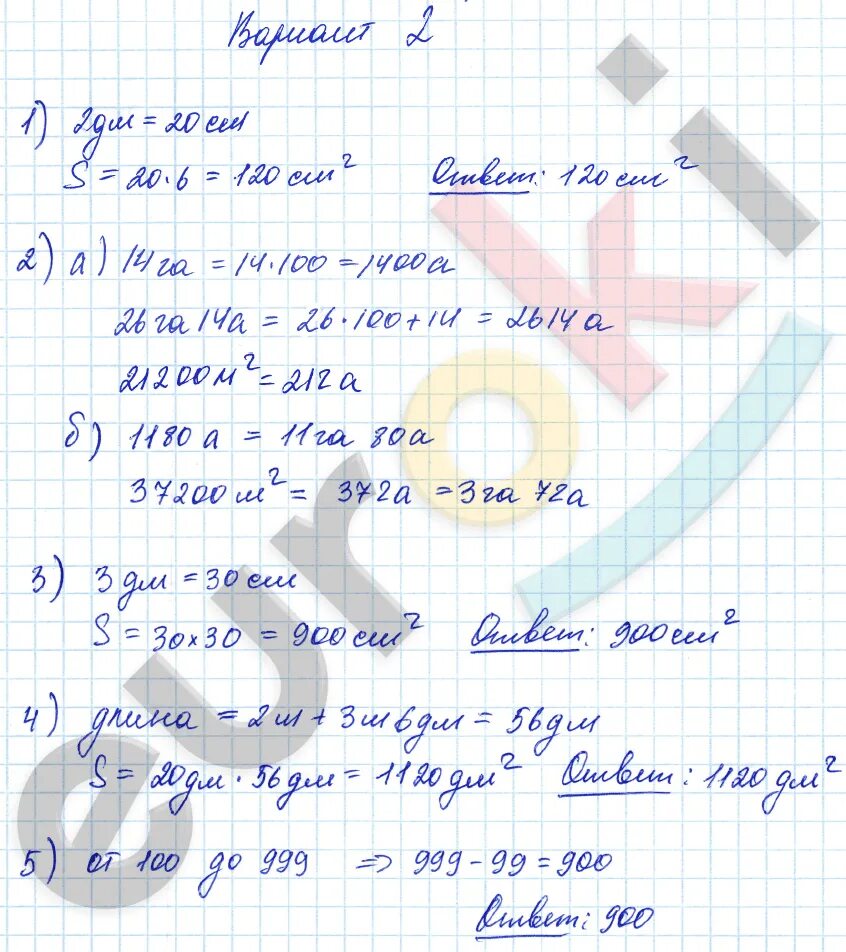 Вариант 2
1) 2дм = 20 см
S = 20·6 = 120 см² Ответ: 120 см²
2) а) 14 га = 14·100 = 1400 а
26 га 14 а = 26·100 + 14 = 2614 а
21200 м² = 212 а
б) 1180 а = 11 га 80 а
37200 м² = 372 а = 3 га 72 а
3) 3 дм = 30 см
S = 30×30 = 900 см² Ответ: 900 см²
4) длина = 2 м + 3 м 6 дм = 56 дм
S = 20 дм · 56 дм = 1120 дм² Ответ: 1120 дм²
5) от 100 до 999 => 999 - 99 = 900
Ответ: 900
euroki